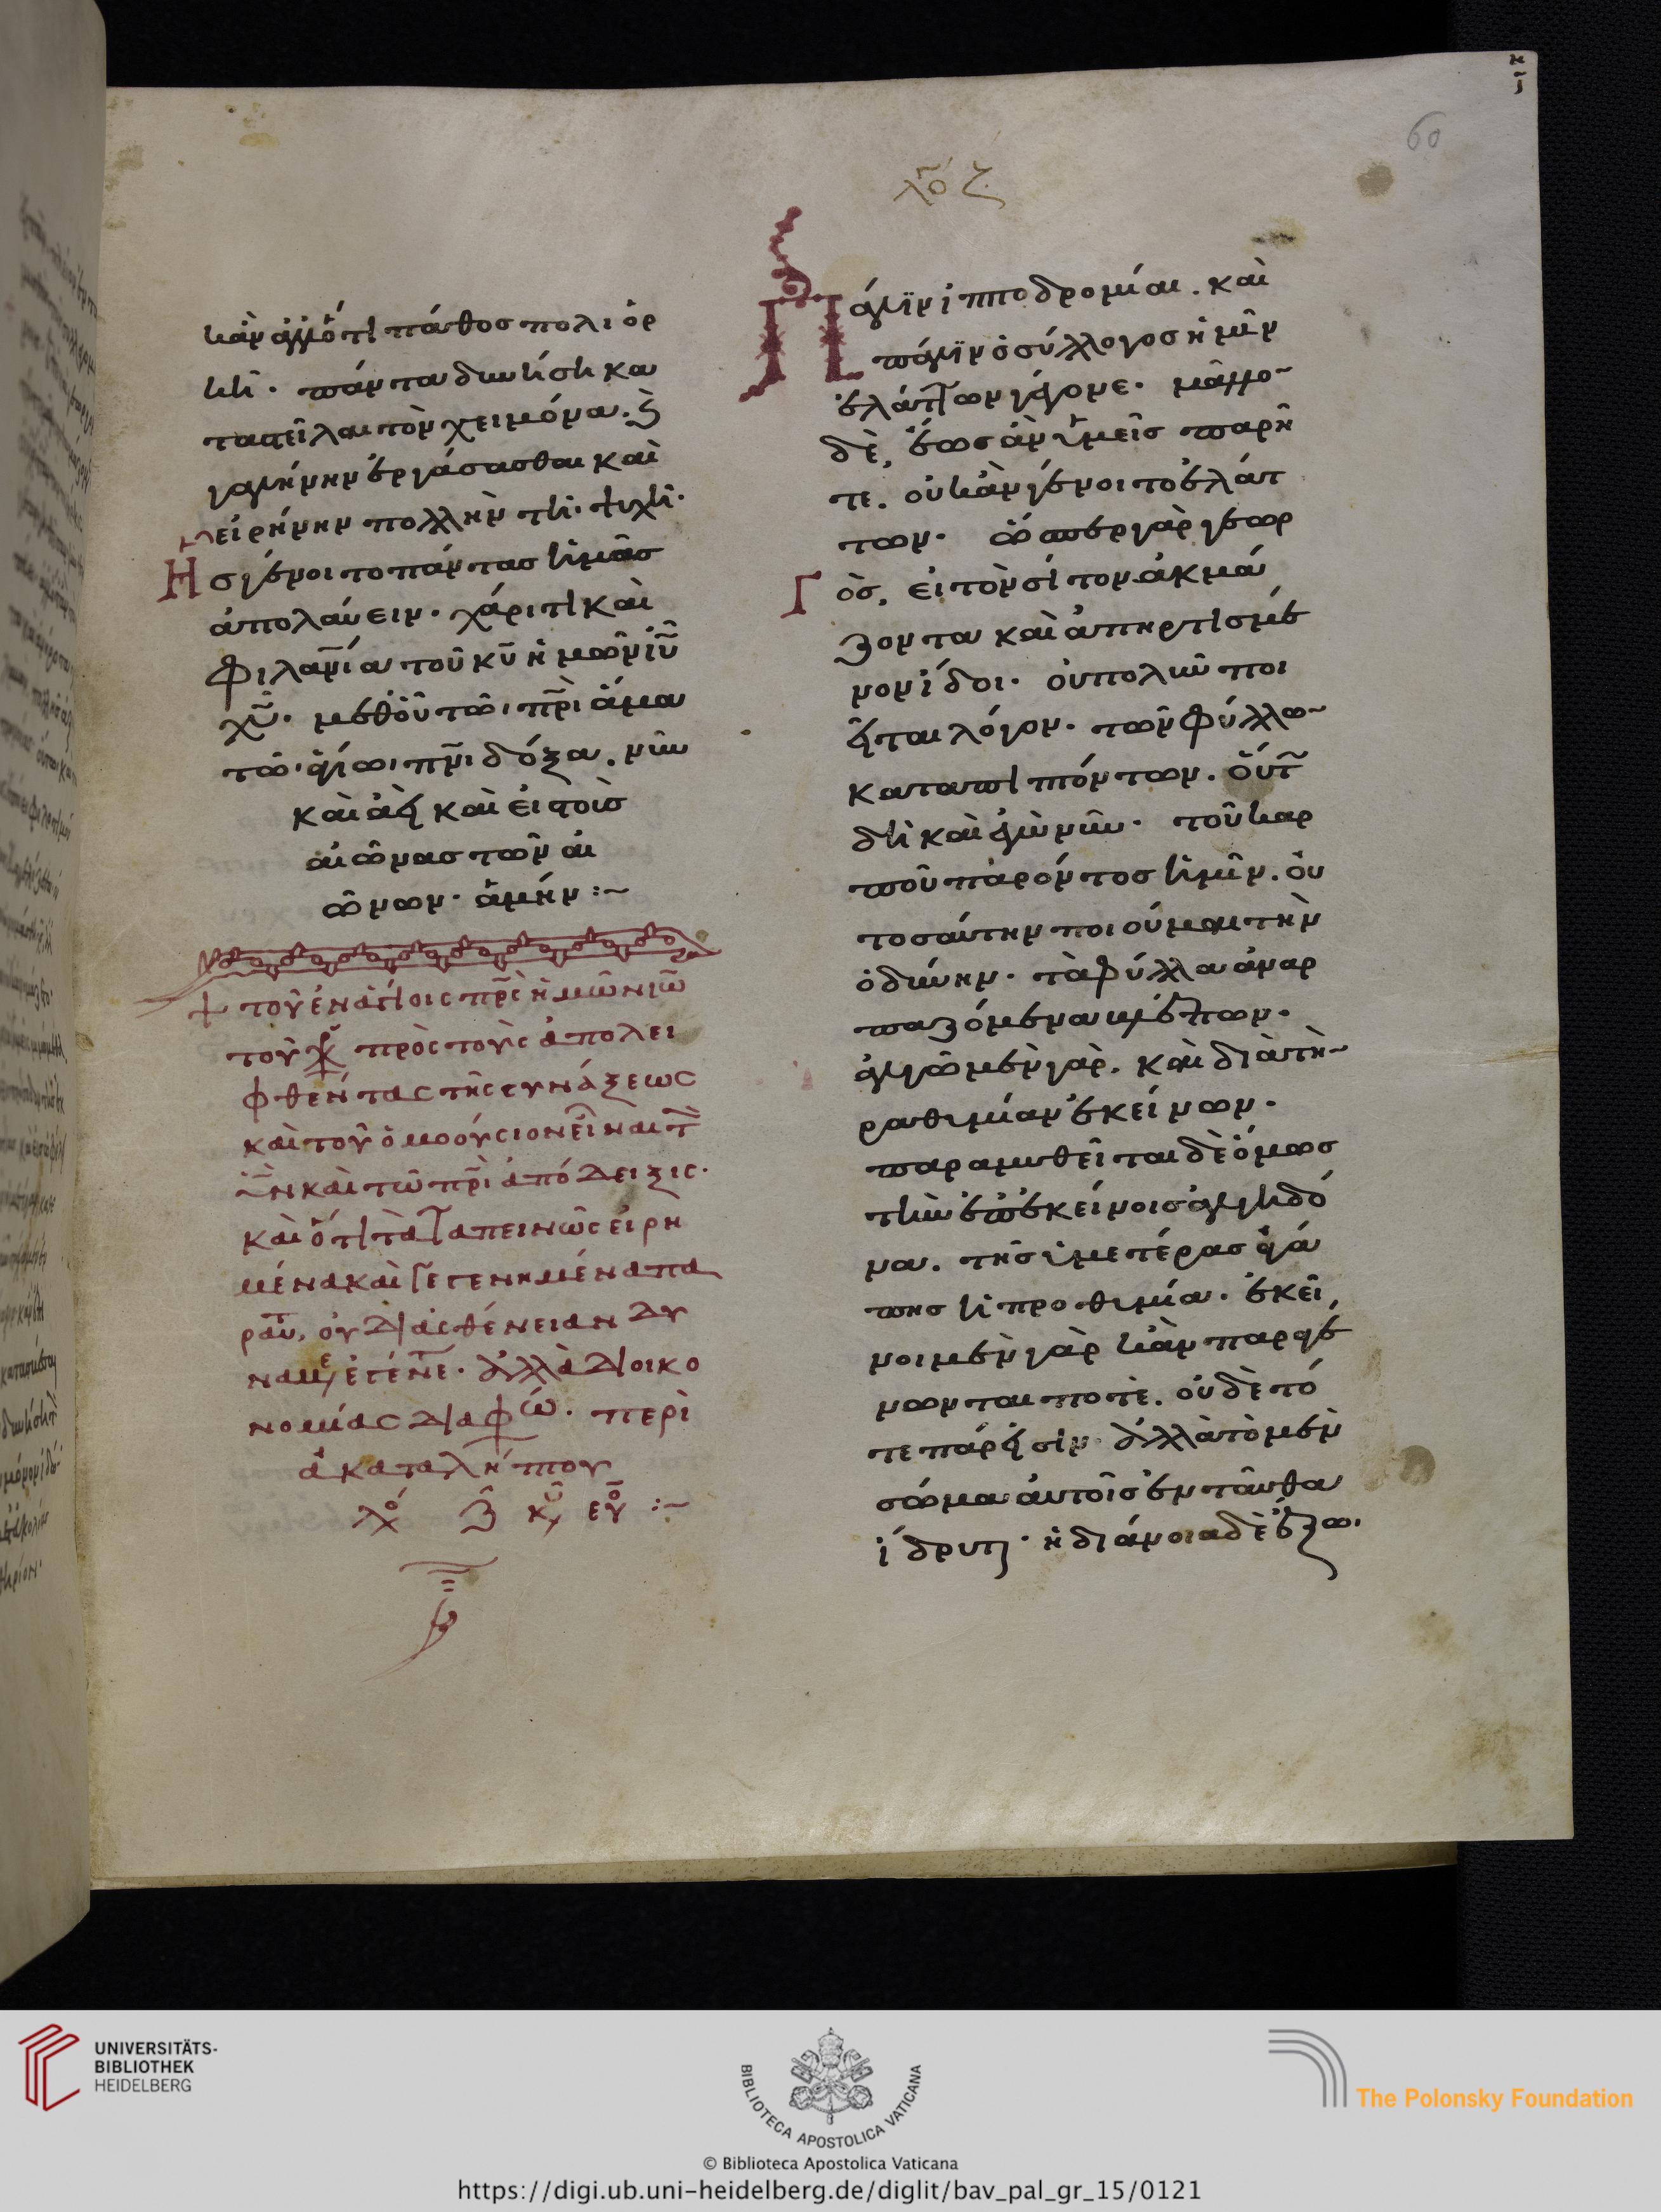 κἂν ἄλλό τι πάθος πολιορ
κῆ. πάντα δυνήση κα
ταστεῖλαι τὸν χειμόνα. ϗ
γαλήνην ἐργάσασθαι καὶ
εἰρήνην πολλὴν τῆ. ψυχῆ.
Ης γένοιτο πάντας ἡμᾶς
ἀπολαύειν. χάριτι καὶ
φιλανία τοῦ κυ ἡμῶν ιυ
χυ. μεθ' οὗ τῶ πρι ἅμα
τῶ ἁγίω πνι δόξα. νῦν
καὶ ἀεὶ καὶ εἰς τοὺς
αἰῶνας τῶν αἰ
ώνων. ἀμήν :~
τοῦ ἐν ἁγίοις πρς ἡμῶν ιω
τοῦ χρ πρὸς τοὺς ἀπολει
φθέντας τῆς συνάξεως
καὶ τοῦ ὁμοούσιον εἶναι τ
υν καὶ τῶ πρι ἀπόδειξις.
καὶ ὅτι τὰ ταπεινῶς εἰρη
μένα καὶ γεγενημένα πα
ρ' αυ. οὐ δι' ἀσθένειαν δυ
ναμε ἐγένε. ἀλλὰ δι' οἰκο
νομίας διαφω. περὶ
ἀκαταλήπτου
λο ζ κυ ευ :~
λό ζ
60
Πάλιν ἱπποδρομίαι. καὶ
πάλιν ὁ σύλλογος ἡμῖν
ἐλάττων γέγονε. μᾶλλο
δὲ, ἕως ἂν ὑμεῖς παρῆ
τε. οὐκ ἂν γένοιτο ἐλάτ
των. ὥσπερ γὰρ γεωρ
Γ ὸς, εἰ τὸν σίτον ἀκμά
ζοντα καὶ ἀπηρτισμέ
νον ἴδοι. οὐ πολὺν ποι
εῖται λόγον. τῶν φύλλω
καταπιπόντων. οὕτ
δὴ καὶ ἐγὼ νῦν. τοῦ καρ
ποῦ παρόντος ἡμῖν. οὐ
τοσαύτην ποιούμαι τὴν
ὀδύνην. τὰ φύλλα ἀναρ
παζόμενα βλέπων.
ἀλγῶ μὲν γὰρ. καὶ διὰ τὴ
ραθυμίαν ἐκείνων.
παραμυθεῖται δὲ ὅμως
τὴν ἐπ' ἐκείνοις ἀλγηδό
να. τῆς ὑμετέρας ἀγά
πης ἡ προθυμία. ἐκεῖ
νοι μὲν γὰρ κἂν παραγέ
νωνται ποτὲ. οὐδὲ τό
τε πάρεισιν. ἀλλὰ τὸ μὲν
σῶμα αὐτοῖς ἐνταῦθα
ἵδρυται. ἡ διάνοια δὲ ἔξω.
UNIVERSITÄTS-
BIBLIOTHEK
HEIDELBERG
BIBLIOTECA APOSTOLICA VATICANA
The Polonsky Foundation
© Biblioteca Apostolica Vaticana
https://digi.ub.uni-heidelberg.de/diglit/bav_pal_gr_15/0121